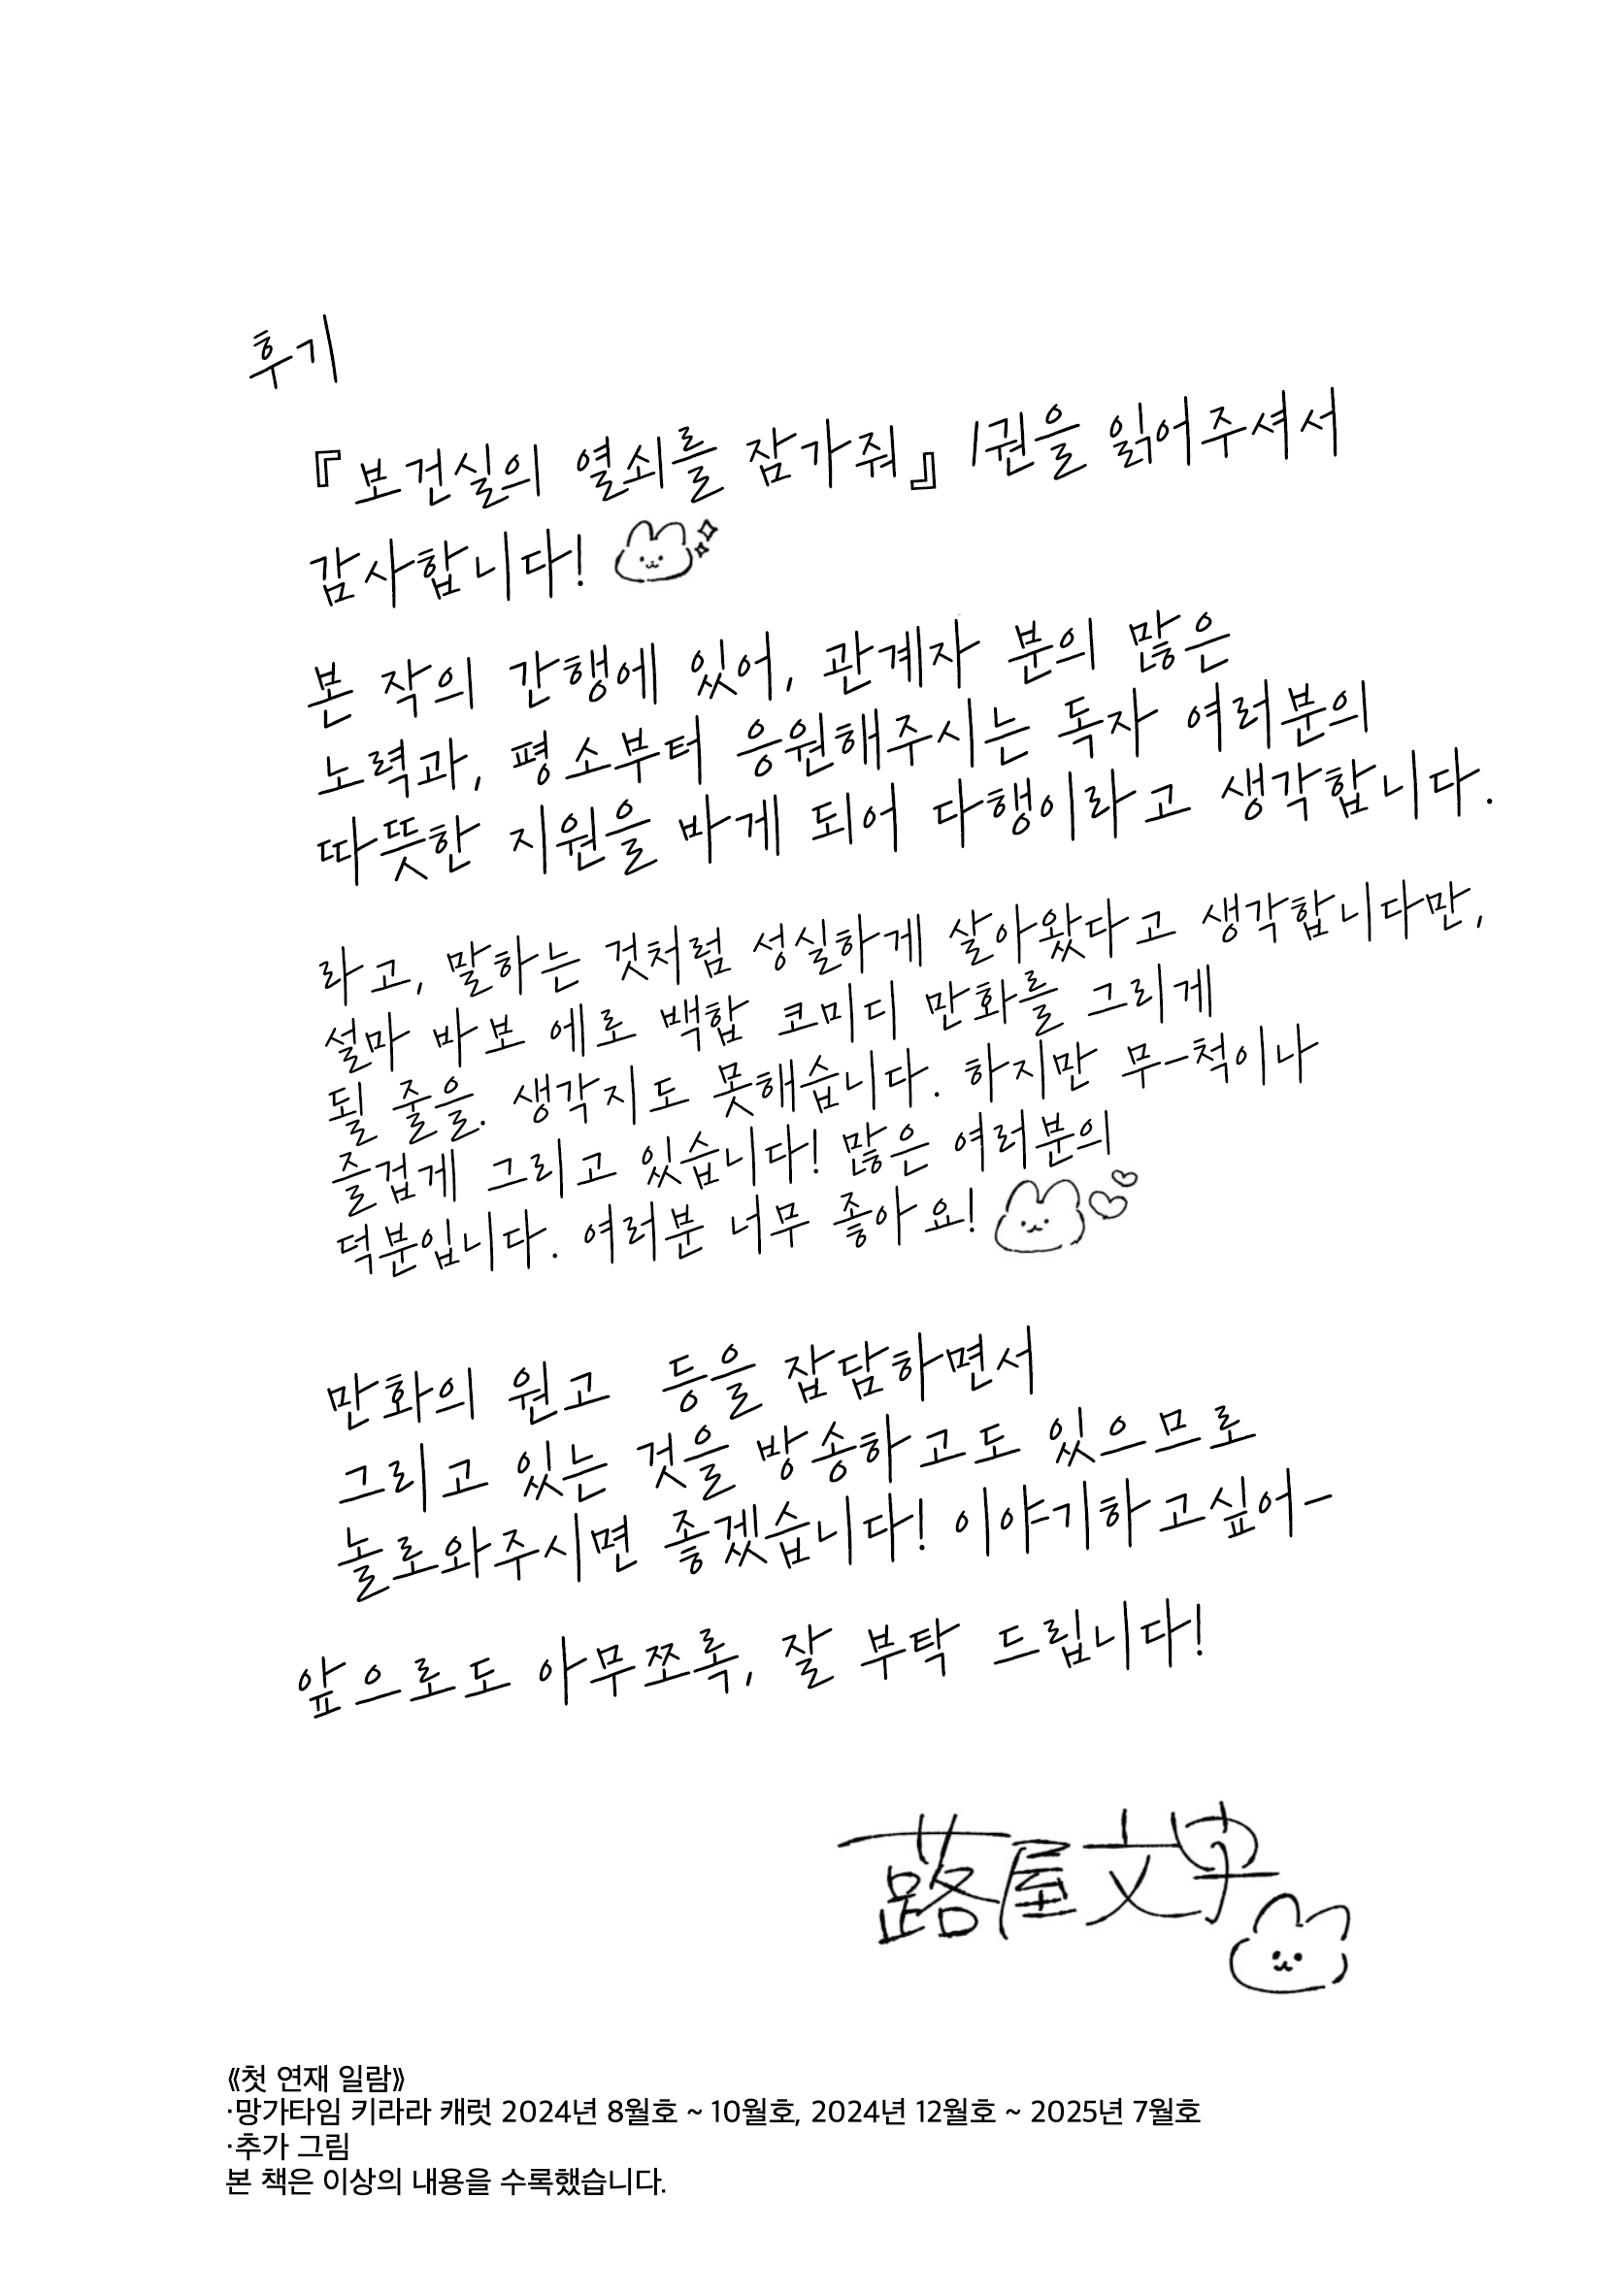 후기
『보건실의 열쇠를 잠가줘』 1권을 읽어주셔서
감사합니다!
본 작의 간행에 있어, 관계자 분의 많은
노력과, 평소부터 응원해주시는 독자 여러분의
따뜻한 지원을 바게 되어 다행이라고 생각합니다.
라고, 말하는 것처럼 성실하게 살아왔다고 생각합니다만,
설마 바보 에로 백합 코미디 만화를 그리게
될 줄을. 생각지도 못해습니다. 하지만 무-척이나
즐겁게 그리고 있습니다! 많은 여러분의
덕분입니다. 여러분 너무 좋아요!
만화의 원고 등을 잡담하면서
그리고 있는 것을 방송하고도 있으므로
놀로와주시면 좋겠습니다! 이야기하고싶어-
앞으로도 아무쪼록, 잘 부탁 드립니다!
蕗屋文字
《첫 연재 일람》
·망가타임 키라라 캐럿 2024년 8월호 ~ 10월호, 2024년 12월호 ~ 2025년 7월호
·추가 그림
본 책은 이상의 내용을 수록했습니다.